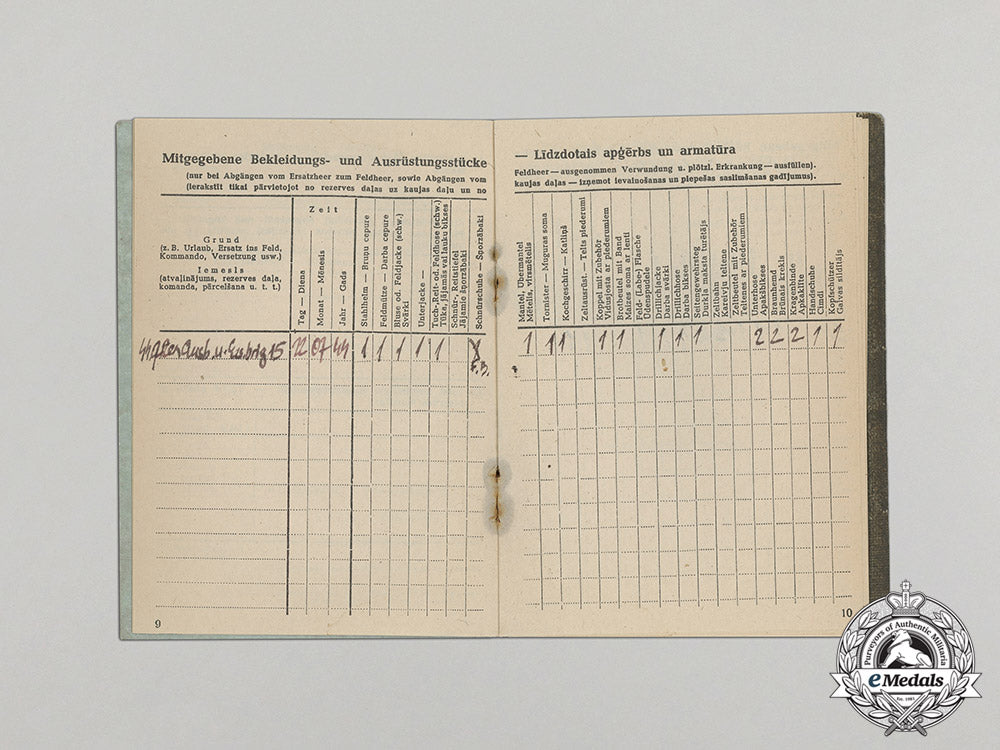 Mitgegebene Bekleidungs- und Ausrüstungsstücke
(nur bei Abgängen vom Ersatzheer zum Feldheer, sowie Abgängen vom
(Ierakstīt tikai pārvietojot no rezerves daļas uz kaujas daļu un no
Grund
(z. B. Urlaub, Ersatz ins Feld,
Kommando, Versetzung usw.)
Iemesls
(atvaļinājums, rezerves daļa,
komanda, pārcelšana u. t. t.)
Zeit
Tag — Diena
Monat — Mēnesis
Jahr — Gads
Stahlhelm — Bruņu cepure
Feldmütze — Darba cepure
Bluse od. Feldjacke (schw.)
Svārki
Unterjacke —
Tuch-, Reit- od. Feldhose (schw.)
Tūka, jājamās vai lauku bikses
Schnür-, Reitstiefel
Jājamie šporzābaki
Schnürschuhe — Šporzābaki
Ausb. u. 15 12 07 44 1 1 1 1 1
9
— Līdzdotais apģērbs un armatūra
Feldheer — ausgenommen Verwundung u. plötzl. Erkrankung — ausfüllen).
kaujas daļas — izņemot ievainošanas un piepešas saslimšanas gadījumus).
Mantel, Übermantel
Mētelis, virsmētelis
Tornister — Muguras soma
Kochgeschirr — Katliņš
Zeltausrüst. — Telts piederumi
Koppel mit Zubehör
Vidusjosta ar piederumiem
Brotbeutel mit Band
Maizes soma ar lenti
Feld- (Labe-) Flasche
Ūdenspudele
Drillichjacke
Darba svārki
Drillichhose
Darba bikses
Seitengewehrsteg
Durkļa maksts turētājs
Zeltbahn
Kareivju teltene
Zeltbeutel mit Zubehör
Teltenes ar piederumiem
Unterhose
Apakšbikses
Braunhemd
Brūnais krekls
Kragenbinde
Apkaklīte
Handschuhe
Cimdi
Kopfschützer
Galvas sildītājs
1 1 1 1 1 1 1 1 2 2 2 1 1
10
Purveyors of Authentic Militaria
eMedals
Est. 1985